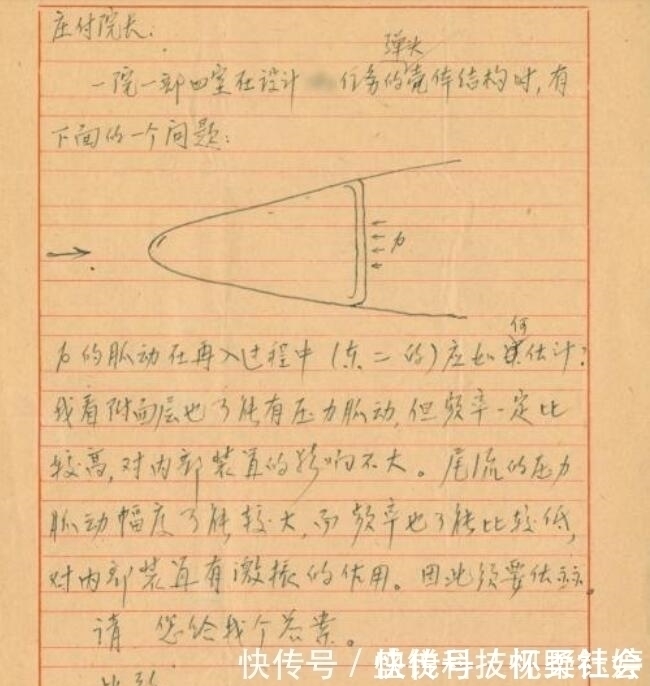 庄付院长:
弹头
一院一部四室在设计 任务的壳体结构时,有
下面的一个问题:
p
p的脈动在再入过程中(东二的)应如何估计?
我看附面层也可能有压力脈动,但频率一定比
较高,对内部装置的影响不大。尾流的压力
脈动幅度可能较大,而频率也可能比较低,
对内部装置有激振的作用。因此须要估立。
请 您给我个答案。
此致
快传号 /